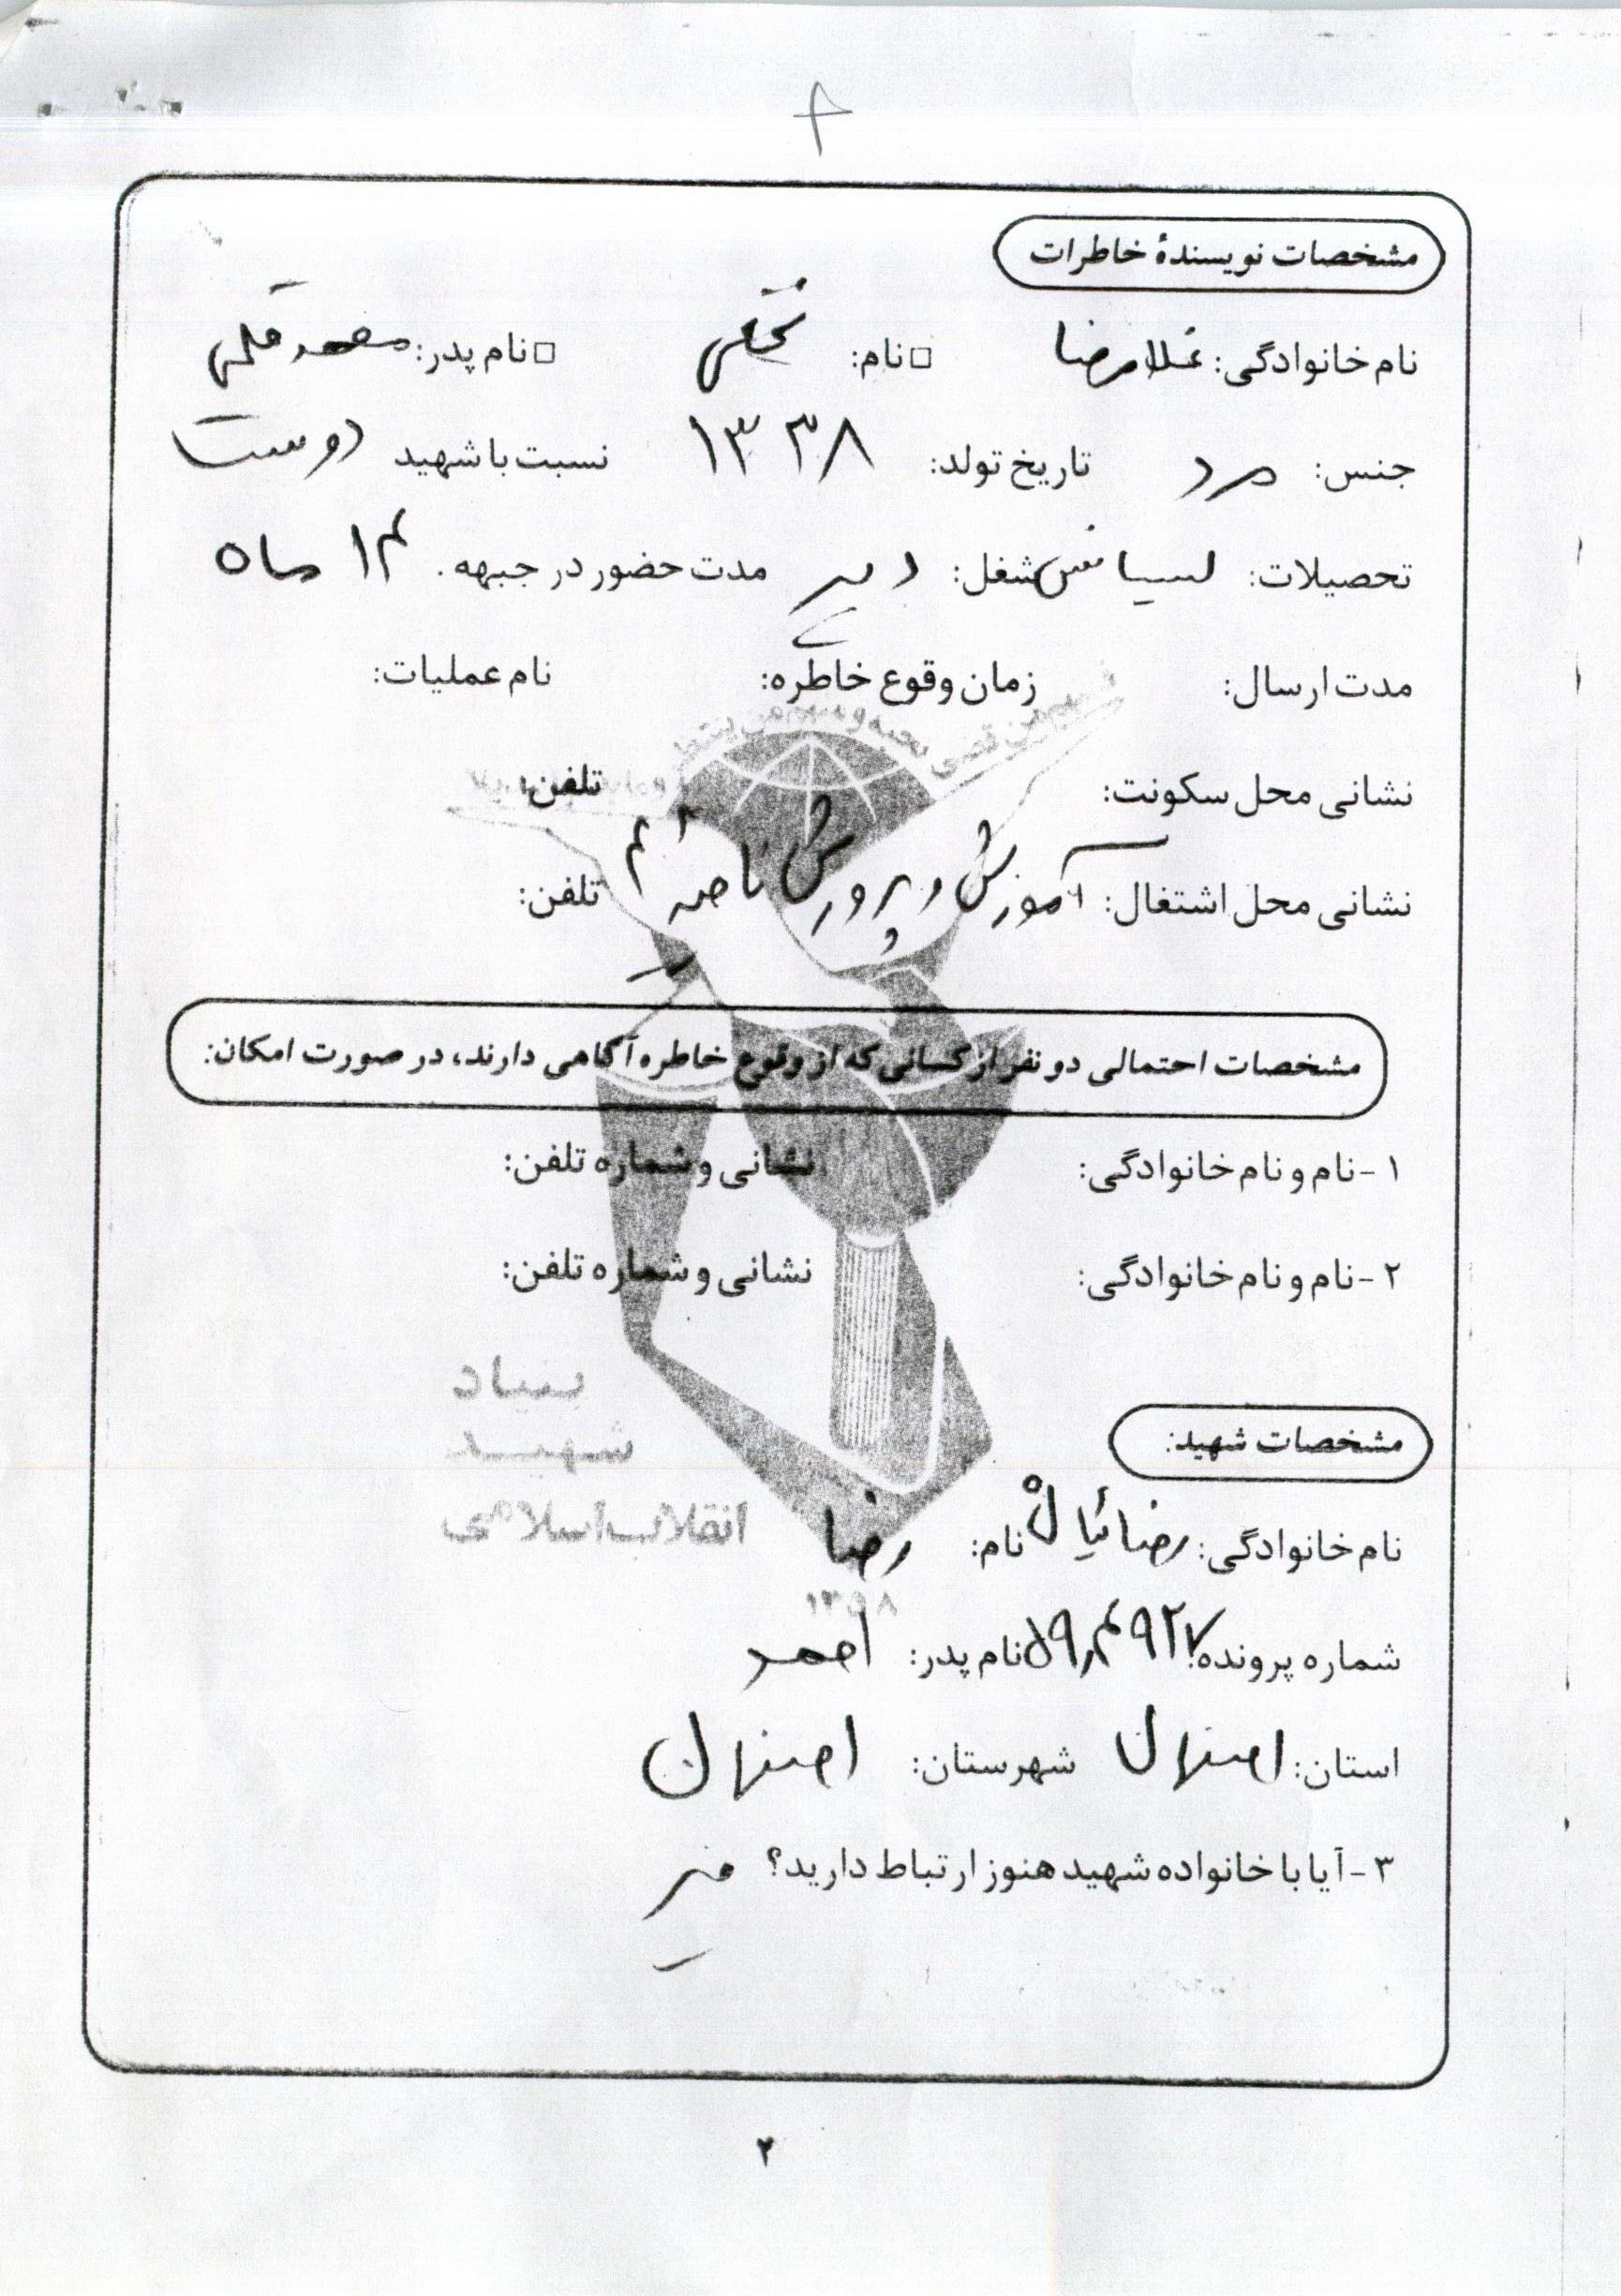 مشخصات نویسندهٔ خاطرات
نام خانوادگی: غلامرضا □ نام: نخعی □ نام پدر: محمد قلی
جنس: مرد تاریخ تولد: ۱۳۳۸ نسبت با شهید دوست
تحصیلات: لیسانس شغل: دبیر مدت حضور در جبهه. ۱۴ ماه
مدت ارسال: زمان وقوع خاطره: نام عملیات:
نشانی محل سکونت: تلفن:
نشانی محل اشتغال: آموزش و پرورش ناحیه ۴ تلفن:
مشخصات احتمالی دو نفر از کسانی که از وقوع خاطره آگاهی دارند، در صورت امکان:
۱- نام و نام خانوادگی: نشانی و شماره تلفن:
۲- نام و نام خانوادگی: نشانی و شماره تلفن:
بنیاد
شهید
انقلاب اسلامی
مشخصات شهید:
نام خانوادگی: رضائیان نام: رضا
۱۳۵۸
شماره پرونده: نام پدر: احمد
استان: اصفهان شهرستان: اصفهان
۳- آیا با خانواده شهید هنوز ارتباط دارید؟ خیر
۲